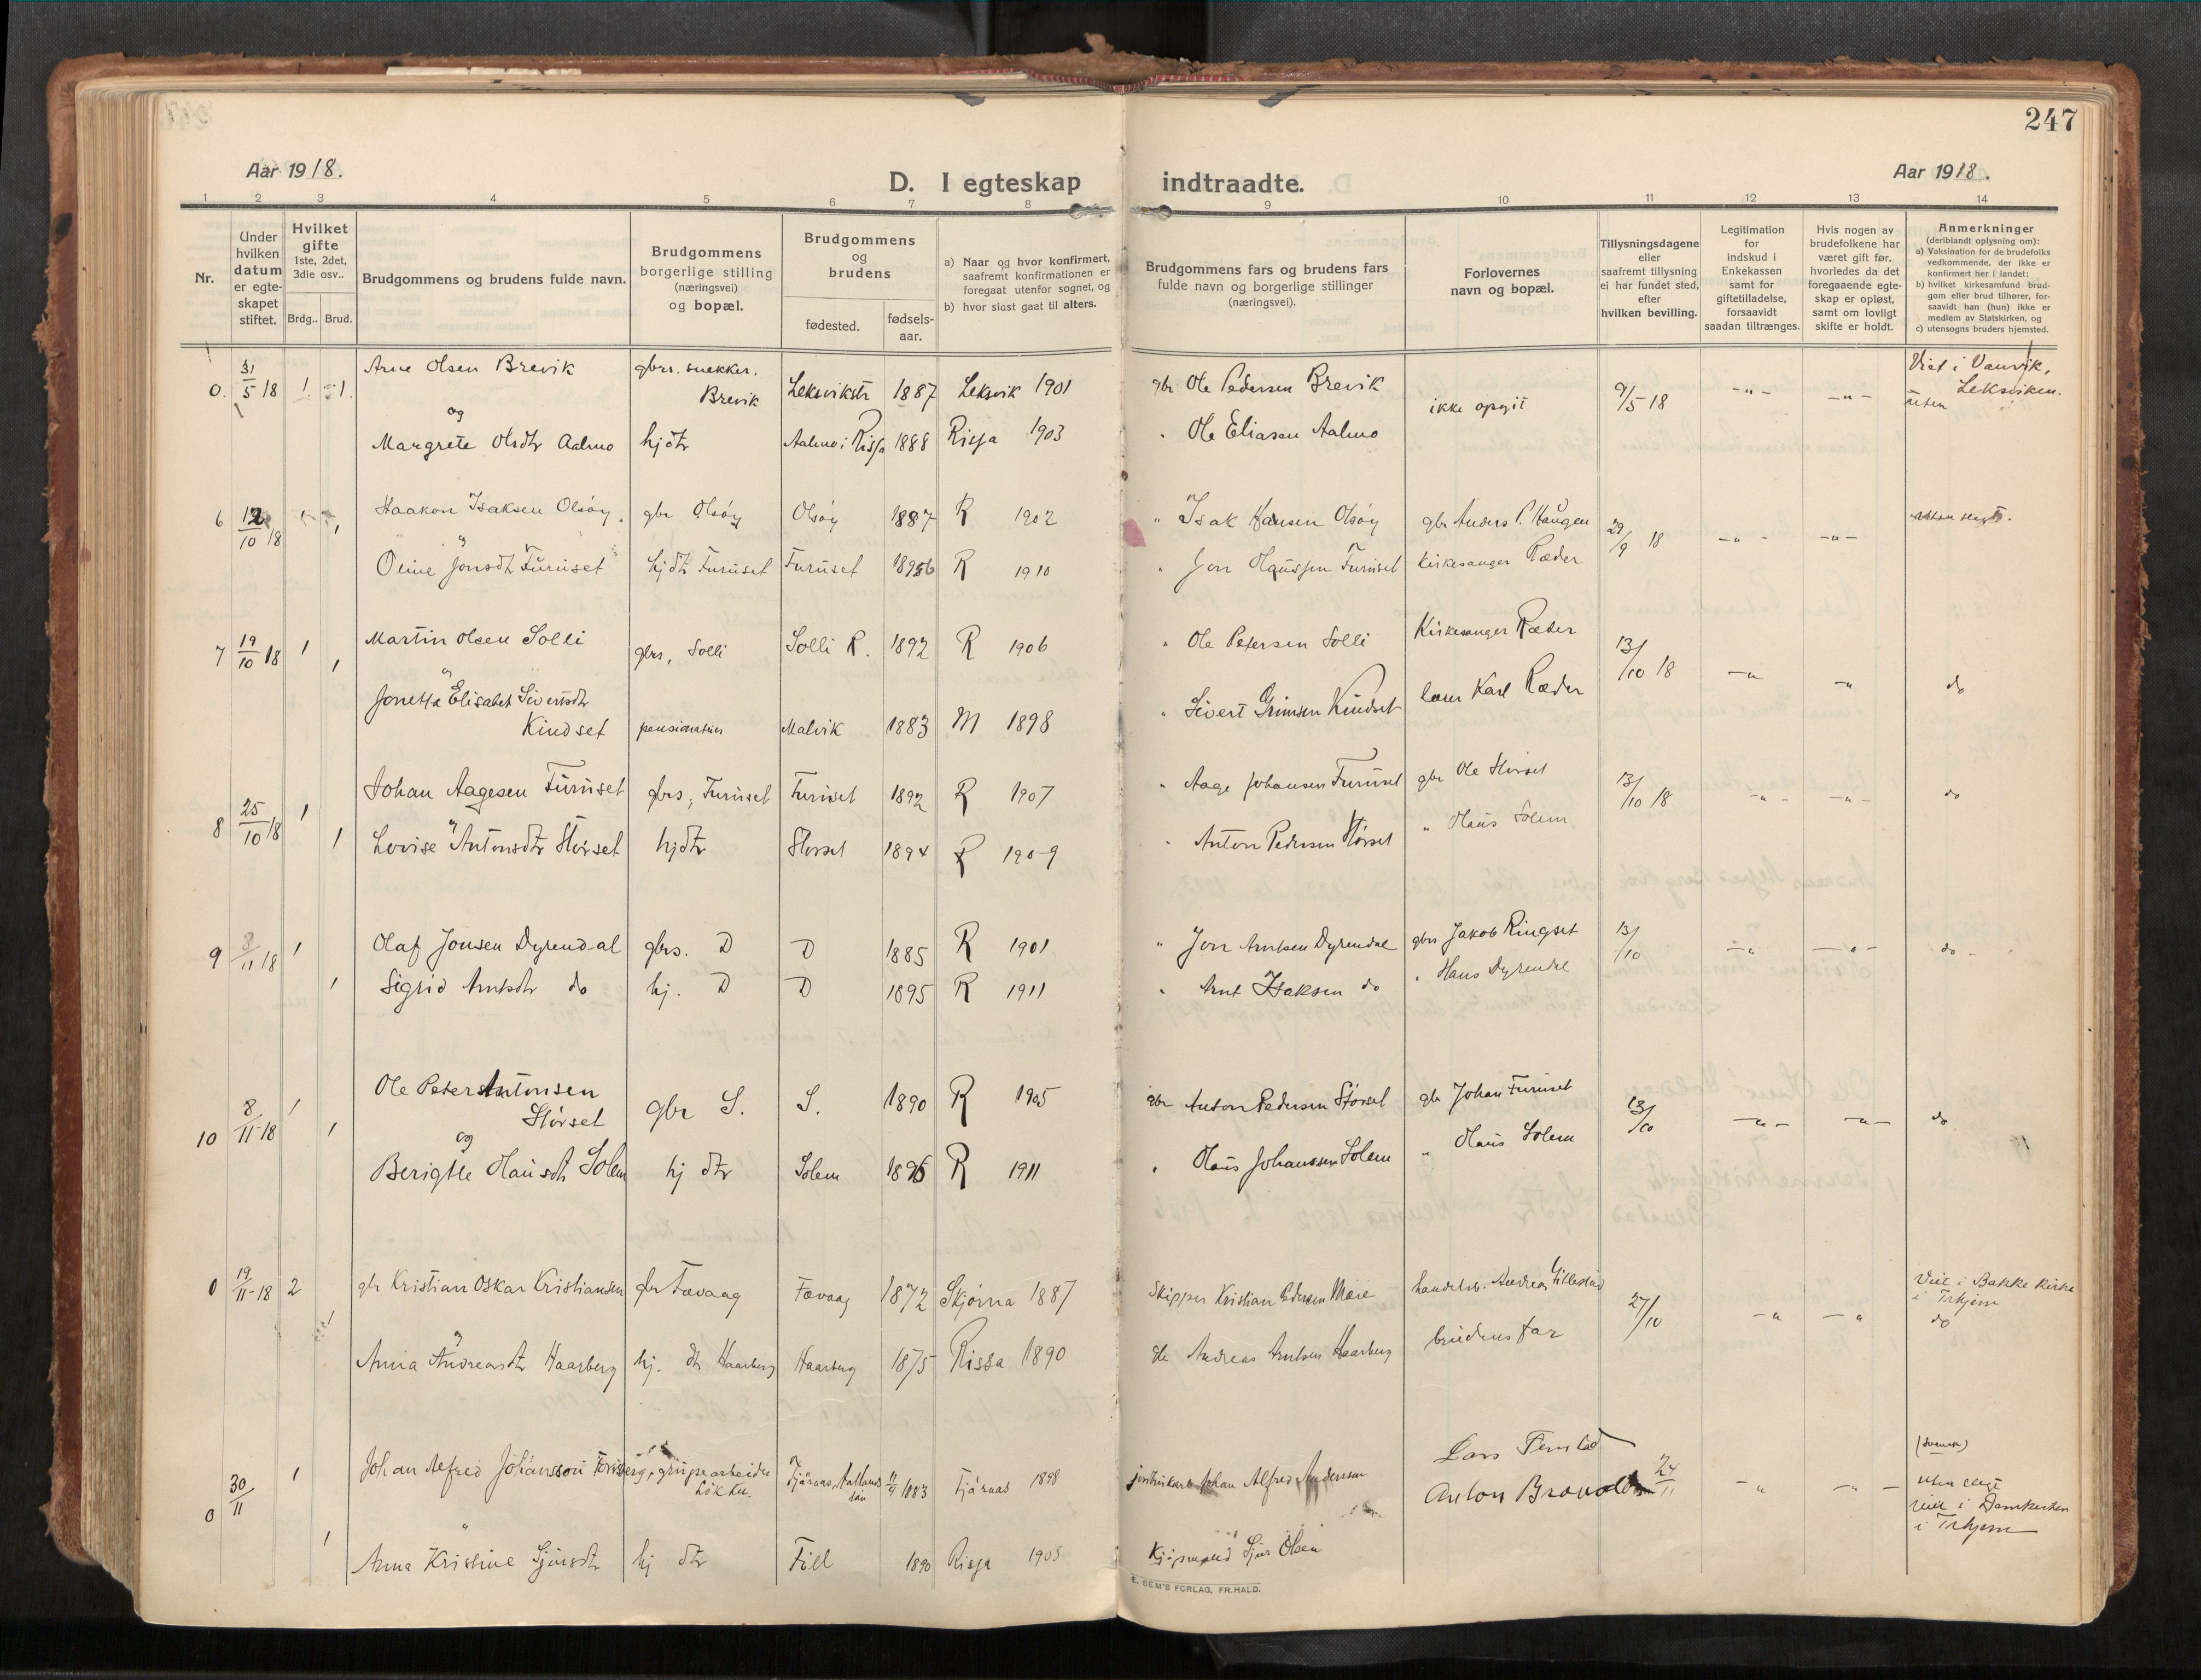 247
Aar 1918.
Aar 1918.
D. I egteskap indtraadte.
1 2 3 4 5 6 7 8 9 10 11 12 13 14
Nr.
Under
hvilken
datum
er egte-
skapet
stiftet.
Hvilket
gifte
1ste, 2det,
3die osv..
Brdg.. Brud.
Brudgommens og brudens fulde navn.
Brudgommens
borgerlige stilling
(næringsvei)
og bopæl.
Brudgommens
og
brudens
fødested.
fødsels-
aar.
a) Naar og hvor konfirmert,
saafremt konfirmationen er
foregaat utenfor sognet, og
b) hvor sidst gaat til alters.
Brudgommens fars og brudens fars
fulde navn og borgerlige stillinger
(næringsvei).
Forlovernes
navn og bopæl.
Tillysningsdagene
eller
saafremt tillysning
ei har fundet sted,
efter
hvilken bevilling.
Legitimation
for
indskud i
Enkekassen
samt for
giftetilladelse,
forsaavidt
saadan tiltrænges.
Hvis nogen av
brudefolkene har
været gift før,
hvorledes da det
foregaaende egte-
skap er opløst,
samt om lovligt
skifte er holdt.
Anmerkninger
(deriblandt oplysning om):
a) Vaksination for de brudefolks
vedkommende, der ikke er
konfirmert her i landet;
b) hvilket kirkesamfund brud-
gom eller brud tilhører, for-
saavidt han (hun) ikke er
medlem av Statskirken, og
c) utensogns bruders hjemsted.
0. 31/5 18 1 1. Arne Olsen Brevik gbrs. snekker. Brevik Leksvikstr 1887 Leksvik 1901 gbr Ole Pedersen Brevik ikke opgit 9/5 18 -"- -"- Viet i Vanvik, Leksviken.
uten
og
Margrete Olsdtr Aalmo hjdtr Aalmo i Rissa 1888 Rissa 1903 " Ole Eliasen Aalmo
6 12/10 18 1 1 Haakon Isaksen Olsøy gbr Olsøy Olsøy 1887 R 1902 " Isak Hansen Olsøy gbr Anders P. Haugen 29/9 18 -"- -"- uten slegt.
Oline Jonsdtr Furuset hjdtr Furuset Furuset 1896 R 1910 " Jon Furuset Kirkesanger Ræder
7 19/10 18 1 1 Martin Olsen Solli gbrs, Solli Solli R. 1892 R 1906 " Ole Petersen Solli Kirkesanger Ræder 13/10 18 -" -" do
og
Jonetta Elisabet Sivertsdtr
Kindset Malvik 1883 M 1898 " Sivert Kindset lærer Karl Ræder
8 25/10 18 1 1 Johan Aagesen Furuset gbrs, Furuset Furuset 1892 R 1907 " Aage Johansen Furuset gbr Ole Størset 13/10 18 -"- -"- do
og
Lovise Antonsdtr Størset hjdtr Størset 1894 R 1909 " Anton Pedersen Størset " Olaus Solem
9 8/11 18 1 1 Olaf Jonsen Dyrendal gbrs. D D 1885 R 1901 " Jon Arntsen Dyrendal gbr Jakob Ringset 13/10 -" -"- do -
Sigrid Arntsdtr do hj. D D 1895 R 1911 " Arnt Isaksen do " Hans Dyrendal
10 8/11-18 1 1 Ole Peter Antonsen
Størset gbr S. S. 1890 R 1905 gbr Anton Pedersen Størset gbr Johan Furuset 13/10 -"- -"- do
og
Berigtte Olausdtr Solem hj dtr Solem 1896 R 1911 " Olaus Johanssen Solem " Olaus Solem
0 19/11-18 2 1 gbr Kristian Oskar Kristiansen gbr Fævaag Fævaag 1872 Skjørna 1887 Skipper Kristian Pedersen handelsb. Andreas 27/10 -" -" Viet i Bakke Kirke
i Trhjem
do
og
Anna Andreasdtr Haarberg hj. dtr Haarberg Haarberg 1875 Rissa 1890 Andreas Arntsen Haarberg brudens far
0 30/11 1 1 Johan Alfred Johansson grubearbeider
Løkken. Fjäraas, Hallands
län 11/4 1883 Fjäraas 1898 Johan Alfred Andersson Lars Femstad
Anton 24/11 -" -"- (svensk)
uten slegt
viet i Domkirken
i Trhjem
Anna Kristine Sjursdtr hj dtr Fill 1890 Rissa 1905 Kjøpmand Sjur Olsen
E. SEM'S FORLAG, FR.HALD.